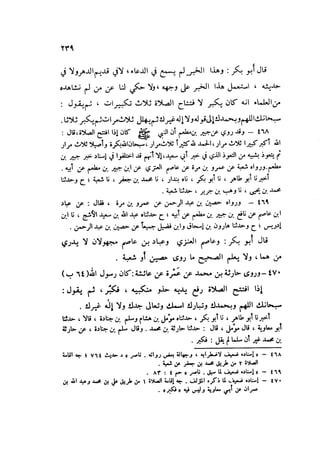 ٢٣٩
قال أبو بكر : وهذا الخبر لم يسمع في الدعاء ، لا في قديم الدهر ولا في
حديثه ، استعمل هذا الخبر على وجهه ، ولا حكي لنا عن من لم نشاهده
من العلماء انه كان يكبر لافتتاح الصلاة ثلاث تكبيرات ، ثم يقول :
سبحانك اللهم وبحمدك إلى قوله ولا إله غيرك ثم يهلل ثلاث مرات ثم يكبر ثلاثا .
٤٦٨ - وقد روي عن جبير بن مطعم أن النبي ﷺ كان إذا افتتح الصلاة ، قال :
الله أكبر كبيرا ثلاث مرار ، الحمد لله كثيراً ثلاث مرار ، سبحان الله بكرة وأصيلا ثلاث مرار
ثم يتعوذ بشبيه من التعوذ الذي في خبر أبي سعيد ، إلا أنهم قد اختلفوا في إسناد خبر جبير بن
مطعم . ورواه شعبة عن عمرو بن مرة عن عاصم العنزي عن ابن جبير بن مطعم عن أبيه .
أخبرنا أبو طاهر ، نا أبو بكر ، ناه بندار ، نا محمد بن جعفر ، نا شعبة ؛ ح وحدثنا
محمد بن يحيى ، نا وهب بن جرير ، حدثنا شعبة .
٤٦٩ - ورواه حصين بن عبد الرحمن عن عمرو بن مرة ، فقال : عن عباد
ابن عاصم عن نافع بن جبير بن مطعم عن أبيه ؛ ح حدثناه عبد الله بن سعيد الأشج ، نا ابن
إدريس ؛ ح وحدثنا هارون بن إسحاق وابن فضيل جميعاً عن حصين بن عبد الرحمن .
قال أبو بكر : وعاصم العنزي وعباد بن عاصم مجهولان لا يدرى
من هما ، ولا يعلم الصحيح ما روى حصين أو شعبة .
٤٧٠ - وروى حارثة بن محمد عن عمرة عن عائشة : كان رسول الله (٦٤ ب)
إذا افتتح الصلاة رفع يديه حذو منكبيه ، فكبر ، ثم يقول :
سبحانك اللهم وبحمدك وتبارك اسمك وتعالى جدك ولا إله غيرك .
أخبرنا أبو طاهر ، نا أبو بكر ، حدثناه مؤمل بن هشام وسلم بن جنادة ، قالا ، حدثنا
أبو معاوية ، قال مؤمل ، قال : حدثنا حارثة بن محمد . وقال سلم بن جنادة ، عن حارثة
بن محمد غير أن سلما لم يقل : فكبر .
٤٦٨ - إسناده ضعيف لاضطرابه ، وجهالة بعض رواته . ناصر . د حديث ٧٦٤ ؛ جه اقامة
الصلاة ٢ من طريق محمد بن جعفر عن شعبة .
٤٦٩ - إسناده ضعيف لما سبق . ناصر . حم ٤ : ٨٣ .
٤٧٠ - إسناده ضعيف لما ذكره المؤلف . جه إقامة الصلاة ١ من طريق علي بن محمد وعبد الله بن
عمران عن أبي معاوية وليس فيه « فكبر » .